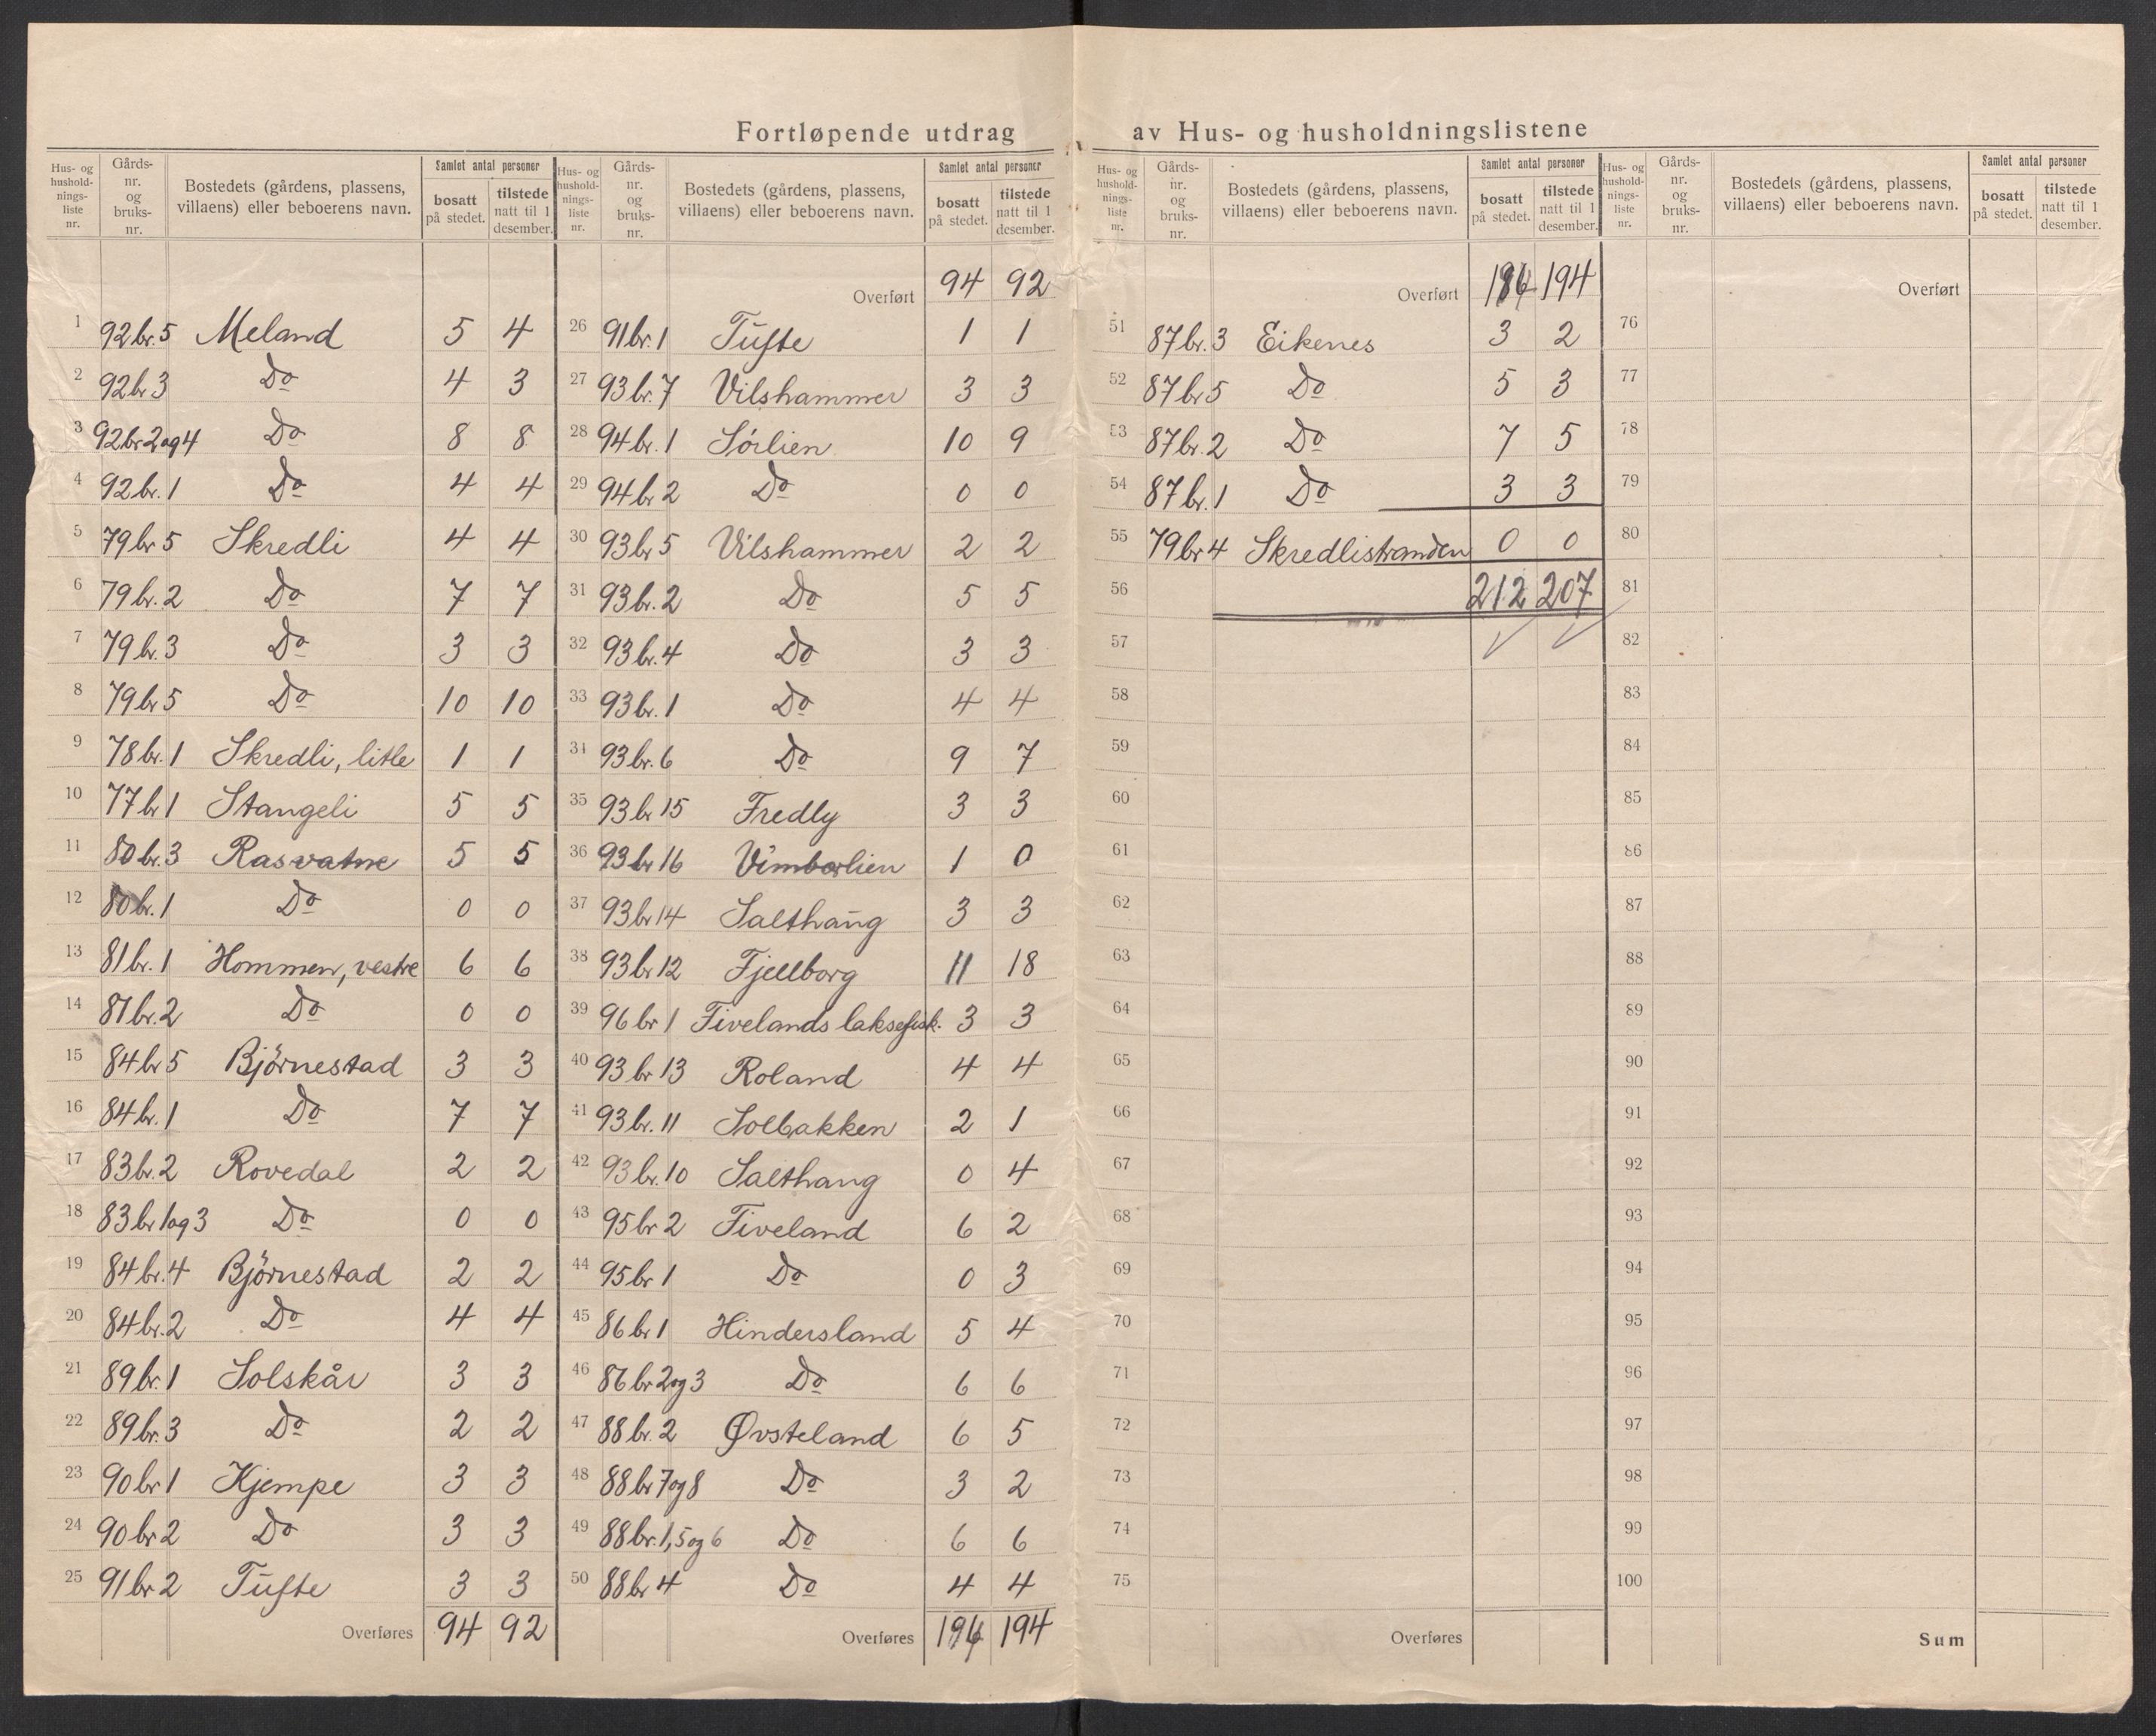 Fortløpende utdrag av Hus- og husholdningslistene
Hus- og hushold- nings- liste nr. | Gårds- nr. og bruks- nr. | Bostedets (gårdens, plassens, villaens) eller beboerens navn. | Samlet antal personer | bosatt på stedet. | tilstede natt til 1 desember.
1 92 br. 5 Meland 5 4
2 92 br 3 Do 4 3
3 92 br 2 og 4 Do 8 8
4 92 br. 1 Do 4 4
5 79 br 5 Skredli 4 4
6 79 br. 2 Do 7 7
7 79 br. 3 Do 3 3
8 79 br 5 Do 10 10
9 78 br. 1 Skredli, litle 1 1
10 77 br 1 Stangeli 5 5
11 80 br. 3 Rasvatne 5 5
12 80 br. 1 Do 0 0
13 81 br. 1 Hommen, vestre 6 6
14 81 br. 2 Do 0 0
15 84 br 5 Bjørnestad 3 3
16 84 br. 1 Do 7 7
17 83 br. 2 Rovedal 2 2
18 83 br 1 og 3 Do 0 0
19 84 br. 4 Bjørnestad 2 2
20 84 br. 2 Do 4 4
21 89 br. 1 Solskår 3 3
22 89 br. 3 Do 2 2
23 90 br 1 Kjempe 3 3
24 90 br 2 Do 3 3
25 91 br 2 Tufte 3 3
Overføres 94 92
Hus- og hushold- nings- liste nr. | Gårds- nr. og bruks- nr. | Bostedets (gårdens, plassens, villaens) eller beboerens navn. | Samlet antal personer | bosatt på stedet. | tilstede natt til 1 desember.
Overført 94 92
26 91 br. 1 Tufte 1 1
27 93 br. 7 Vilshammer 3 3
28 94 br. 1 Sørlien 10 9
29 94 br 2 Do 0 0
30 93 br 5 Vilshammer 2 2
31 93 br. 2 Do 5 5
32 93 br. 4 Do 3 3
33 93 br. 1 Do 4 4
34 93 br. 6 Do 9 7
35 93 br 15 Fredly 3 3
36 93 br 16 1 0
37 93 br 14 Salthaug 3 3
38 93 br 12 Fjellborg 11 18
39 96 br 1 Fivelands laksefisk. 3 3
40 93 br 13 Roland 4 4
41 93 br. 11 Solbakken 2 1
42 93 br. 10 Salthaug 0 4
43 95 br 2 Fiveland 6 2
44 95 br 1 Do 0 3
45 86 br 1 Hindersland 5 4
46 86 br 2 og 3 Do 6 6
47 88 br. 2 Øvsteland 6 5
48 88 br 7 og 8 Do 3 2
49 88 br. 1, 5 og 6 Do 6 6
50 88 br 4 Do 4 4
Overføres 194 194
Hus- og hushold- nings- liste nr. | Gårds- nr. og bruks- nr. | Bostedets (gårdens, plassens, villaens) eller beboerens navn. | Samlet antal personer | bosatt på stedet. | tilstede natt til 1 desember.
Overført 194
51 87 br. 3 Eikenes 3 2
52 87 br 5 Do 5 3
53 87 br. 2 Do 7 5
54 87 br. 1 Do 3 3
55 79 br 4 Skredlistranden 0 0
56 212 207
57
58
59
60
61
62
63
64
65
66
67
68
69
70
71
72
73
74
75
Overføres
Hus- og hushold- nings- liste nr. | Gårds- nr. og bruks- nr. | Bostedets (gårdens, plassens, villaens) eller beboerens navn. | Samlet antal personer | bosatt på stedet. | tilstede natt til 1 desember.
Overført
76
77
78
79
80
81
82
83
84
85
86
87
88
89
90
91
92
93
94
95
96
97
98
99
100
Sum